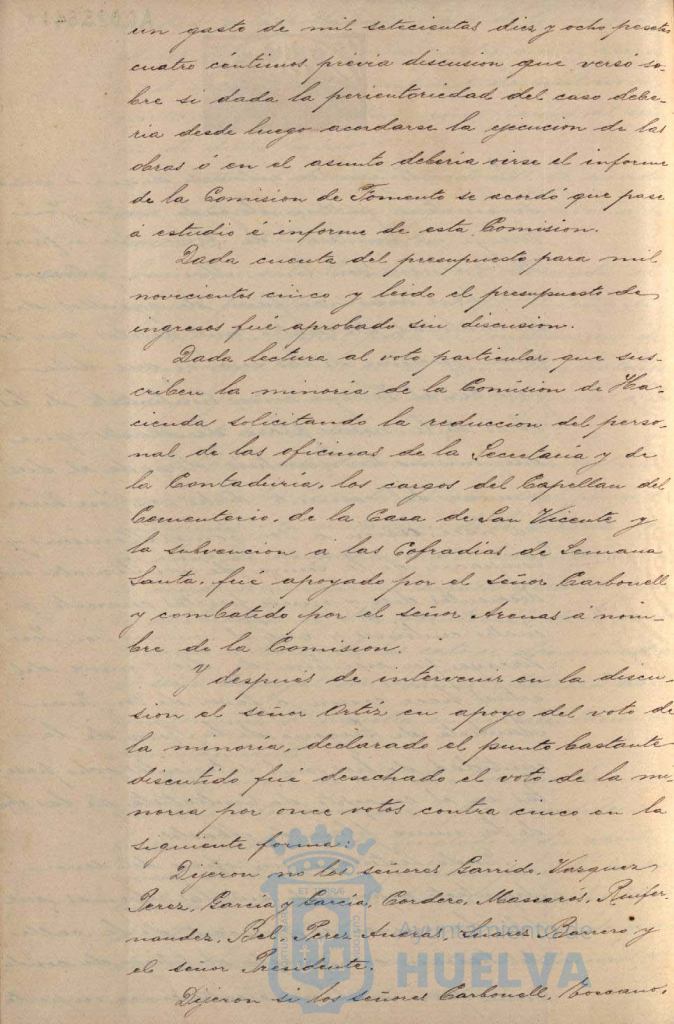 un gasto de mil setecientas diez y ocho pesetas
cuatro céntimos previa discusion que versó so-
bre si dada la perientoriedad del caso debe-
ria desde luego acordarse la ejecucion de las
obras ó en el asunto deberia oirse el informe
de la Comision de Fomento se acordó que pase
á estudio é informe de esta Comision.
Dada cuenta del presupuesto para mil
novecientos cinco y leido el presupuesto de
ingresos fué aprobado sin discusion.
Dada lectura al voto particular que sus-
criben la minoria de la Comision de Ha-
cienda solicitando la reduccion del perso-
nal de las oficinas de la Secretaria y de
la Contaduria, los cargos del Capellan del
Cementerio, de la Casa de San Vicente y
la subvencion á las Cofradias de Semana
Santa, fué apoyado por el señor Carbonell
y combatido por el señor Arenas á nom-
bre de la Comision.
Y después de intervenir en la discu-
sion el señor Ortiz en apoyo del voto de
la minoria, declarado el punto bastante
discutido fué desechado el voto de la mi-
noria por once votos contra cinco en la
siguiente forma:
Dijeron no los señores Garrido, Vazquez
Perez, Garcia y Garcia, Cordero, Mascarós, Ruifer-
nandez, Bel, Perez, Suarez Barrero y
el señor Presidente.
Dijeron si los señores Carbonell, Toscano,
Ayuntamiento de
HUELVA